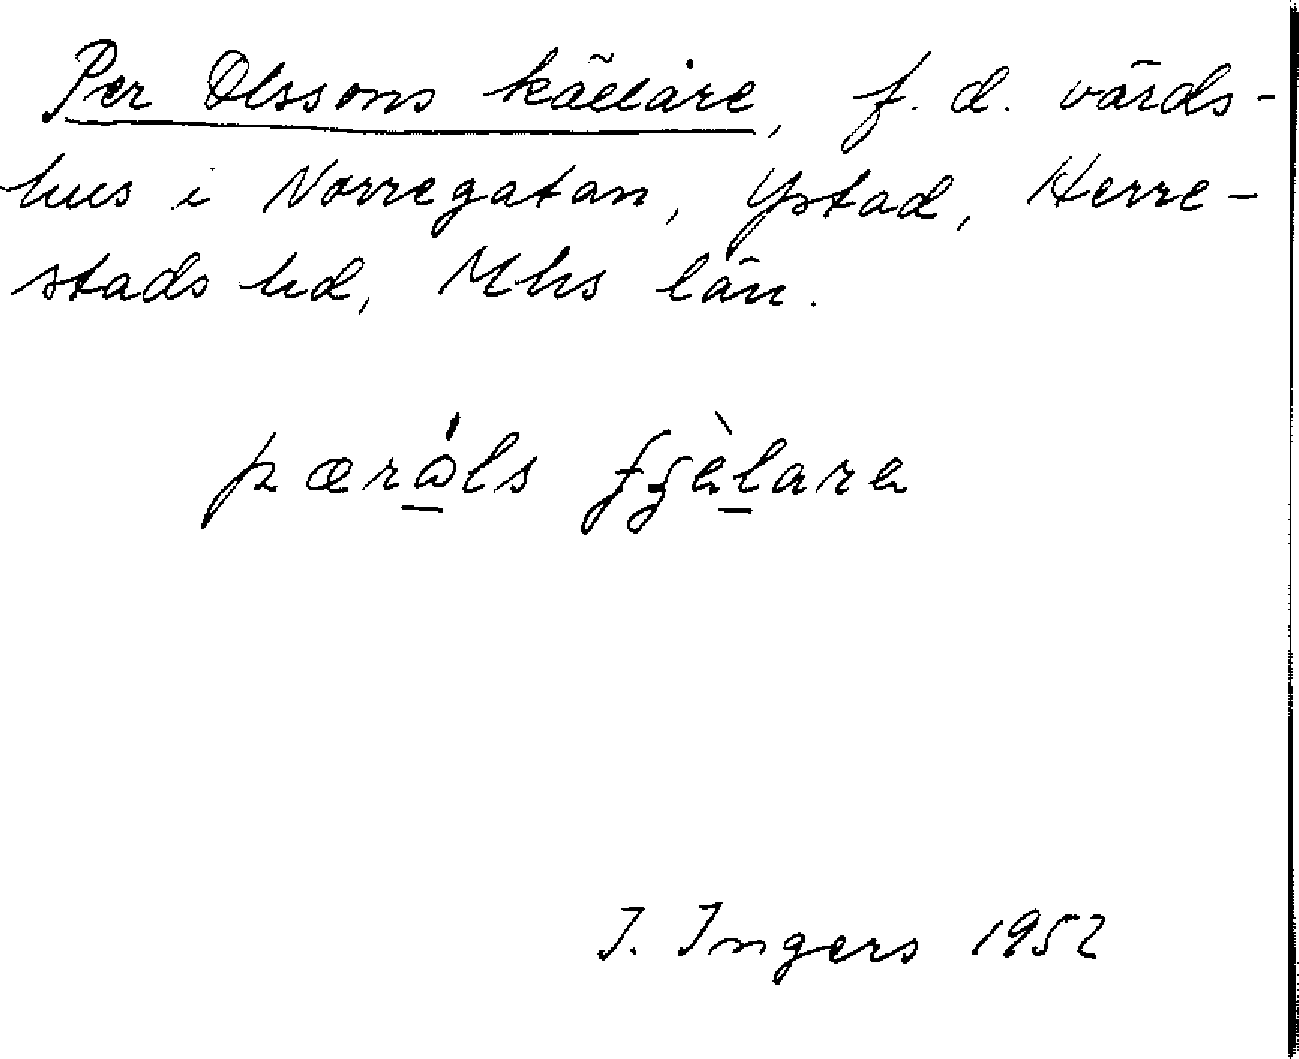 Per Olssons källare, f. d. värds-
hus i Norregatan, Ystad, Herre-
stads hd, Mhs län.
I. Ingers 1952